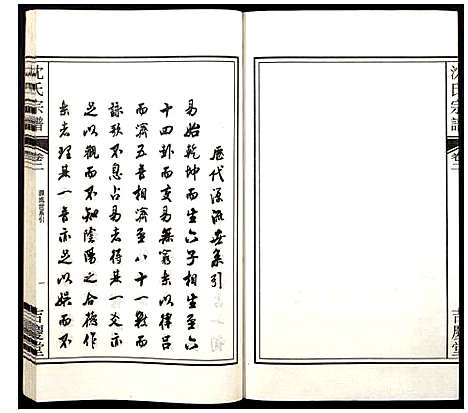 沈氏宗譜
卷二
吉慶堂
歷代源流世系引
易始乾坤而生六子相生至六
十四卦而交易無窮樂以律呂
而濟五音相濟至八十一數而
詠歌不息占易者得其一爻亦
足以觀而不知陰陽之合德作
樂者理其一音亦足以娛而不
沈氏宗譜
卷二
源流世系引
一
吉慶堂